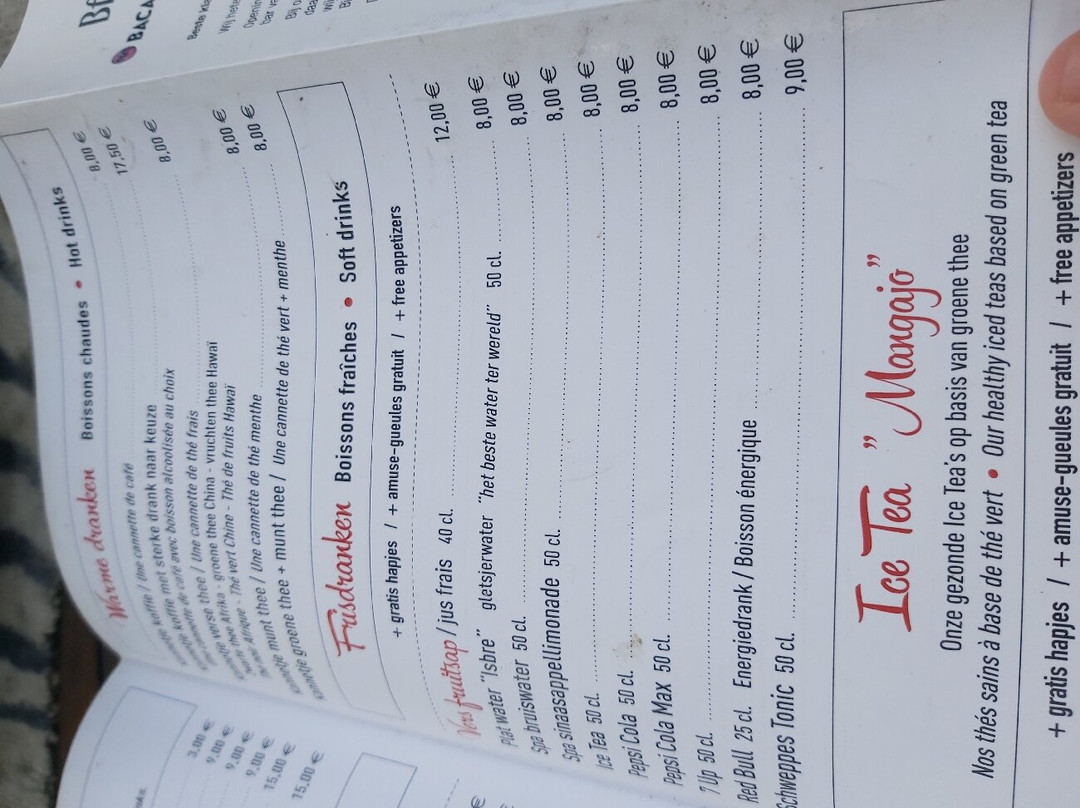 BACA
Beste kla
Wij hete
Opening
bar ve
Bij o
daa
Warme dranken Boissons chaudes • Hot drinks
koffie / Une cannette de café 8,00 €
koffie met sterke drank naar keuze 17,50 €
cannette de café avec boisson alcoolisée au choix
verse thee / Une cannette de thé frais 8,00 €
thee Afrika - groene thee China - vruchten thee Hawaï
Afrique - Thé vert Chine - Thé de fruits Hawaï
Kannetje munt thee / Une cannette de thé menthe 8,00 €
Kannetje groene thee + munt thee / Une cannette de thé vert + menthe 8,00 €
Frisdranken Boissons fraîches • Soft drinks
+ gratis hapjes / + amuse-gueules gratuit / + free appetizers
Vers fruitsap / jus frais 40 cl. 12,00 €
Plat water "Isbre" gletsjerwater "het beste water ter wereld" 50 cl. 8,00 €
Spa bruiswater 50 cl. 8,00 €
Spa sinaasappellimonade 50 cl. 8,00 €
Ice Tea 50 cl. 8,00 €
Pepsi Cola 50 cl. 8,00 €
Pepsi Cola Max 50 cl. 8,00 €
7 Up 50 cl. 8,00 €
Red Bull 25 cl. Energiedrank / Boisson énergique 8,00 €
Schweppes Tonic 50 cl. 9,00 €
Ice Tea "Mangajo"
Onze gezonde Ice Tea's op basis van groene thee
Nos thés sains à base de thé vert • Our healthy iced teas based on green tea
+ gratis hapjes / + amuse-gueules gratuit / + free appetizers
3,00 €
9,00 €
9,00 €
9,00 €
15,00 €
15,00 €